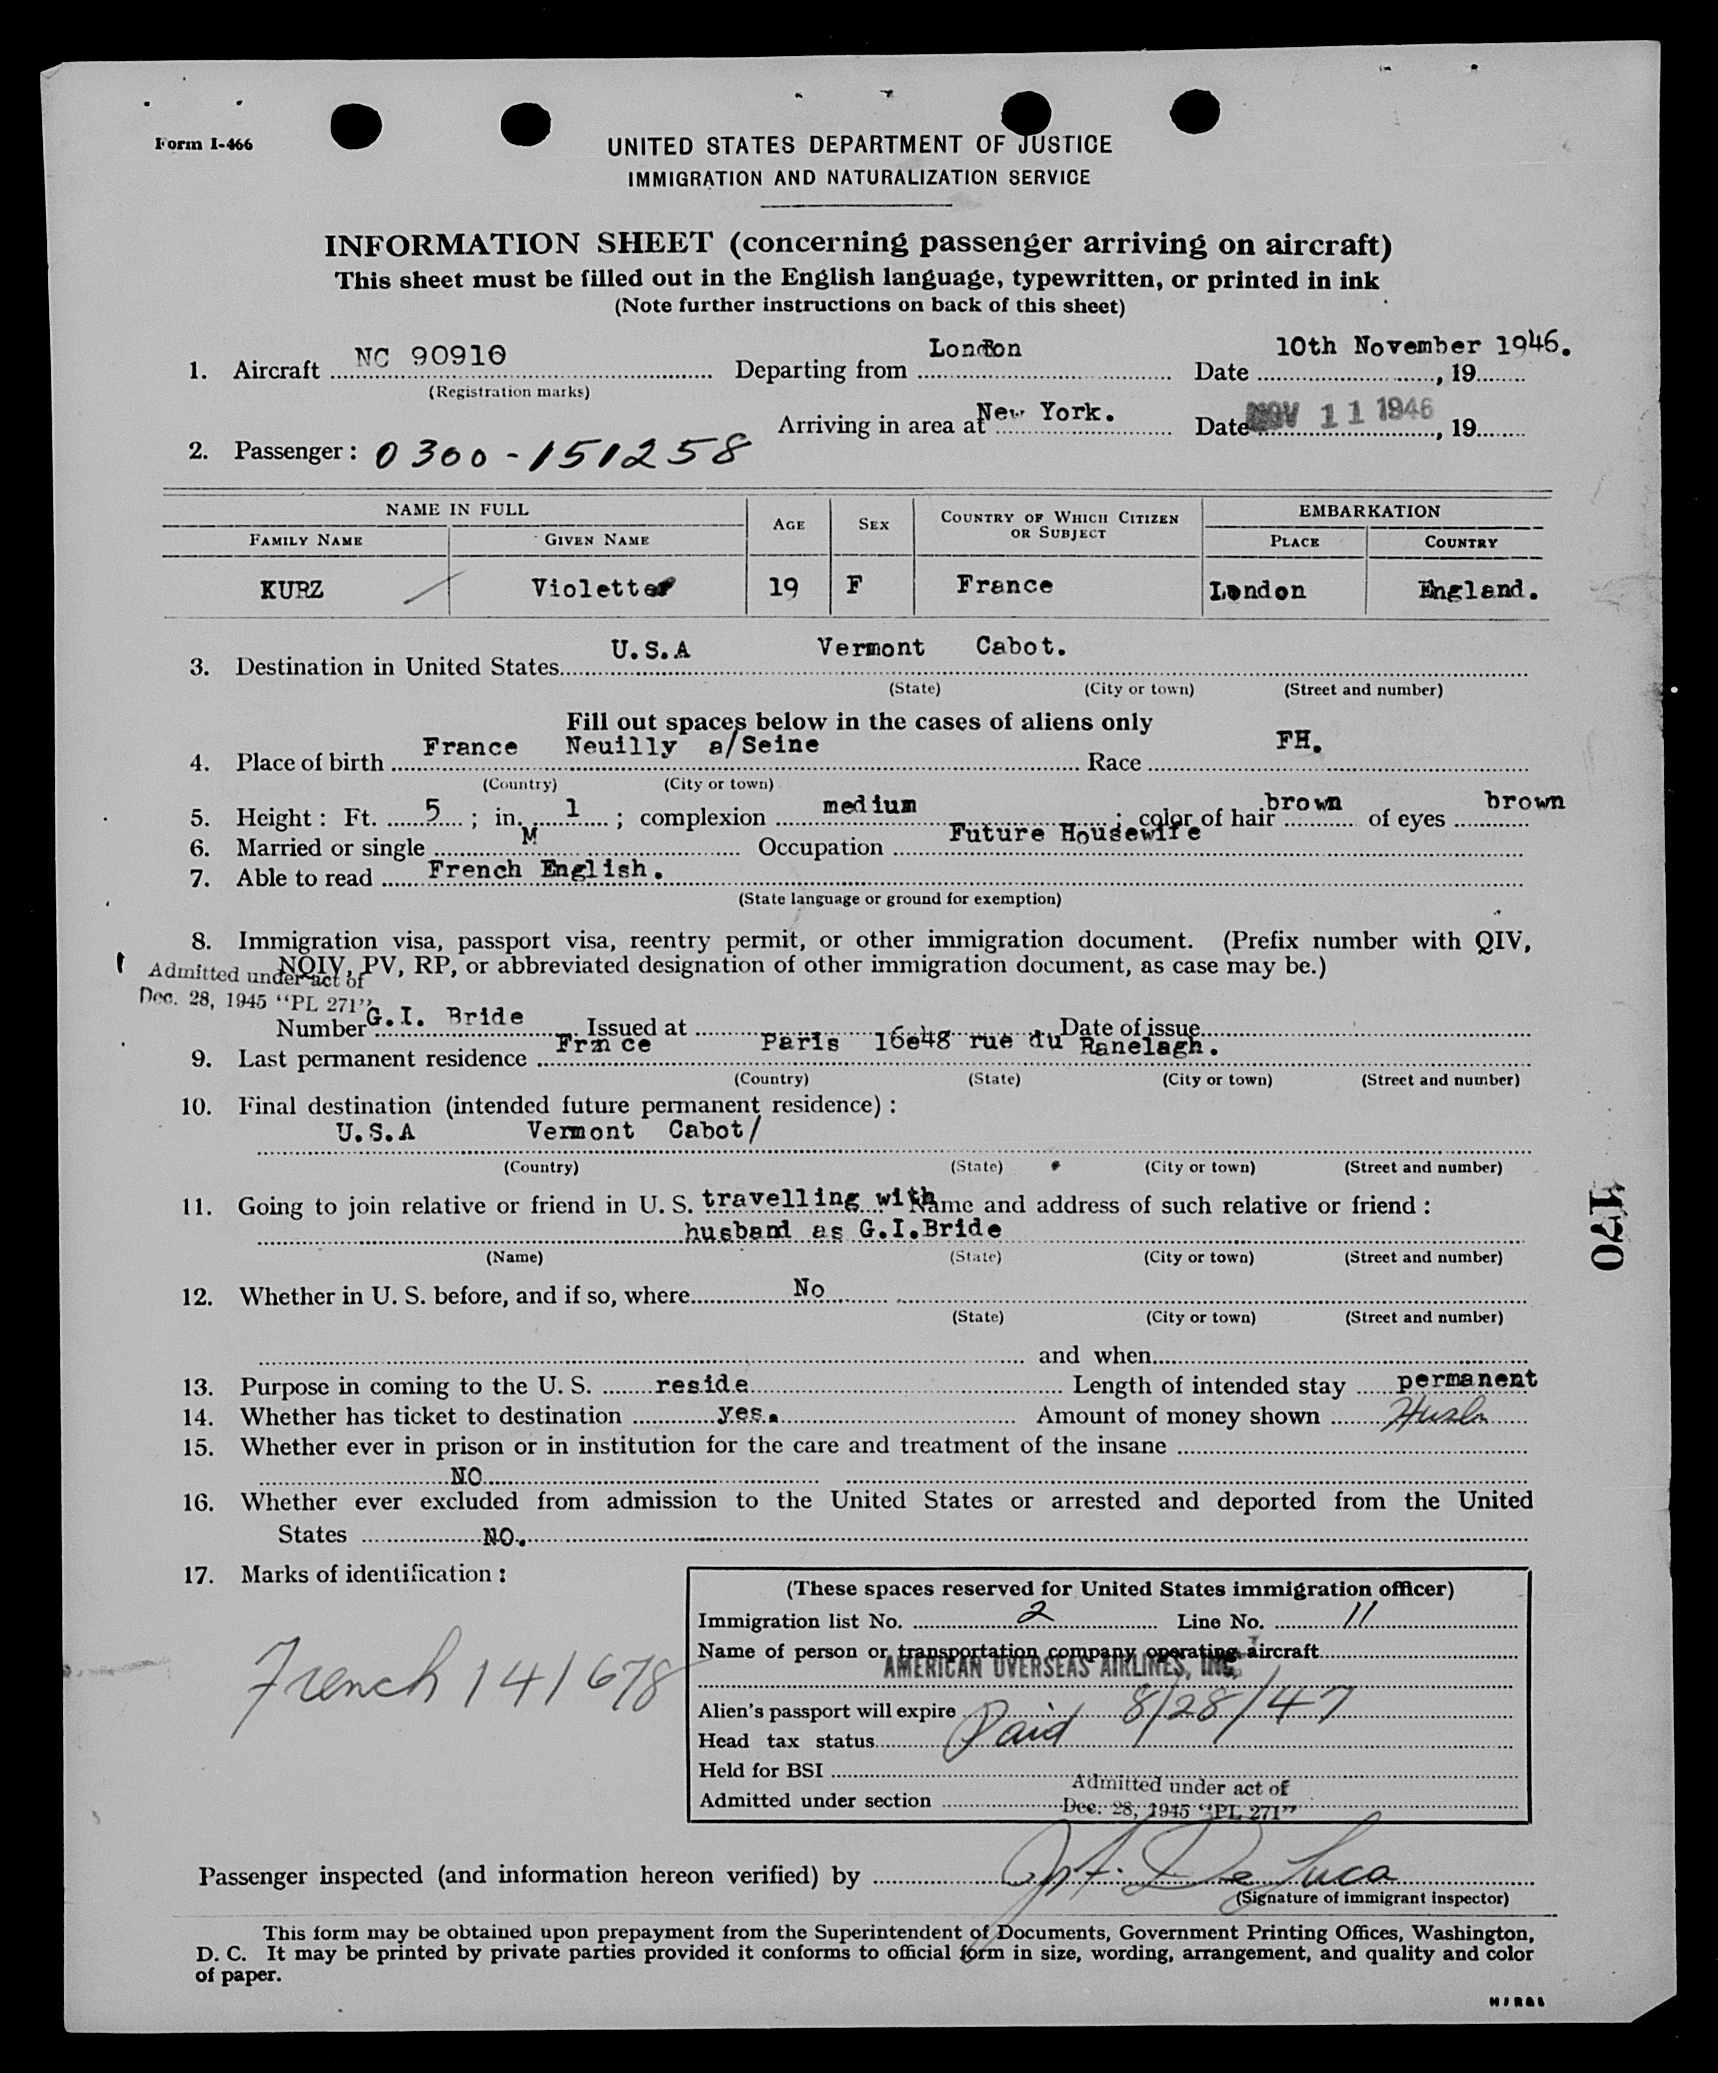 Form I-466
UNITED STATES DEPARTMENT OF JUSTICE
IMMIGRATION AND NATURALIZATION SERVICE
INFORMATION SHEET (concerning passenger arriving on aircraft)
This sheet must be filled out in the English language, typewritten, or printed in ink
(Note further instructions on back of this sheet)
1. Aircraft NC 90910 Departing from London Date 10th November 1946. , 19
(Registration marks)
Arriving in area at New York. Date NOV 11 1946 , 19
2. Passenger: 0300-151258
NAME IN FULL AGE SEX COUNTRY OF WHICH CITIZEN OR SUBJECT EMBARKATION
FAMILY NAME GIVEN NAME PLACE COUNTRY
KURZ / Violette 19 F France London England.
3. Destination in United States U.S.A Vermont Cabot.
(State) (City or town) (Street and number)
Fill out spaces below in the cases of aliens only
4. Place of birth France Neuilly a/Seine Race FH.
(Country) (City or town)
5. Height: Ft. 5 ; in. 1 ; complexion medium ; color of hair brown of eyes brown
6. Married or single M Occupation Future Housewife
7. Able to read French English.
(State language or ground for exemption)
8. Immigration visa, passport visa, reentry permit, or other immigration document. (Prefix number with QIV,
NQIV, PV, RP, or abbreviated designation of other immigration document, as case may be.)
Admitted under act of
Dec. 28, 1945 "PL 271"
Number G.I. Bride Issued at Date of issue
9. Last permanent residence France Paris 16e48 rue du Ranelagh.
(Country) (State) (City or town) (Street and number)
10. Final destination (intended future permanent residence):
U.S.A Vermont Cabot/
(Country) (State) (City or town) (Street and number)
11. Going to join relative or friend in U. S. travelling with Name and address of such relative or friend:
husband as G.I.Bride
(Name) (State) (City or town) (Street and number)
170
12. Whether in U. S. before, and if so, where No
(State) (City or town) (Street and number)
and when
13. Purpose in coming to the U. S. reside Length of intended stay permanent
14. Whether has ticket to destination yes. Amount of money shown
15. Whether ever in prison or in institution for the care and treatment of the insane
NO
16. Whether ever excluded from admission to the United States or arrested and deported from the United
States NO.
17. Marks of identification:
French 141678
(These spaces reserved for United States immigration officer)
Immigration list No. 2 Line No. 11
Name of person or transportation company operating aircraft
AMERICAN OVERSEAS AIRLINES, INC.
Alien's passport will expire 8/28/47
Head tax status Paid
Held for BSI
Admitted under section Admitted under act of
Dec. 28, 1945 "PL 271"
Passenger inspected (and information hereon verified) by De Luca
(Signature of immigrant inspector)
This form may be obtained upon prepayment from the Superintendent of Documents, Government Printing Offices, Washington,
D. C. It may be printed by private parties provided it conforms to official form in size, wording, arrangement, and quality and color
of paper.